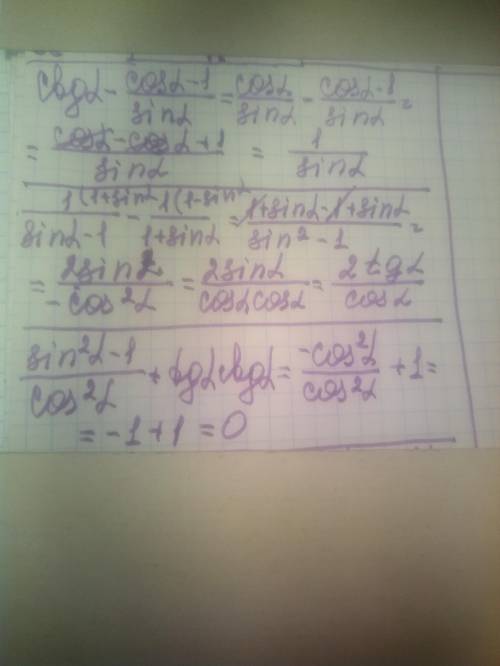 ctgα - (cosα-1)/sinα = cosα/sinα - (cosα-1)/sinα =
= (cosα - cosα + 1)/sinα = 1/sinα
1(1+sinα)/(sinα-1) - 1(1-sinα)/(1+sinα) = (1+sinα-1+sinα)/(sin²-1) =
= 2sinα/(-cos²α) = 2sinα/(cosα cosα) = 2tgα/cosα
(sin²α-1)/cos²α + tgα ctgα = -cos²α/cos²α + 1 =
= -1 + 1 = 0